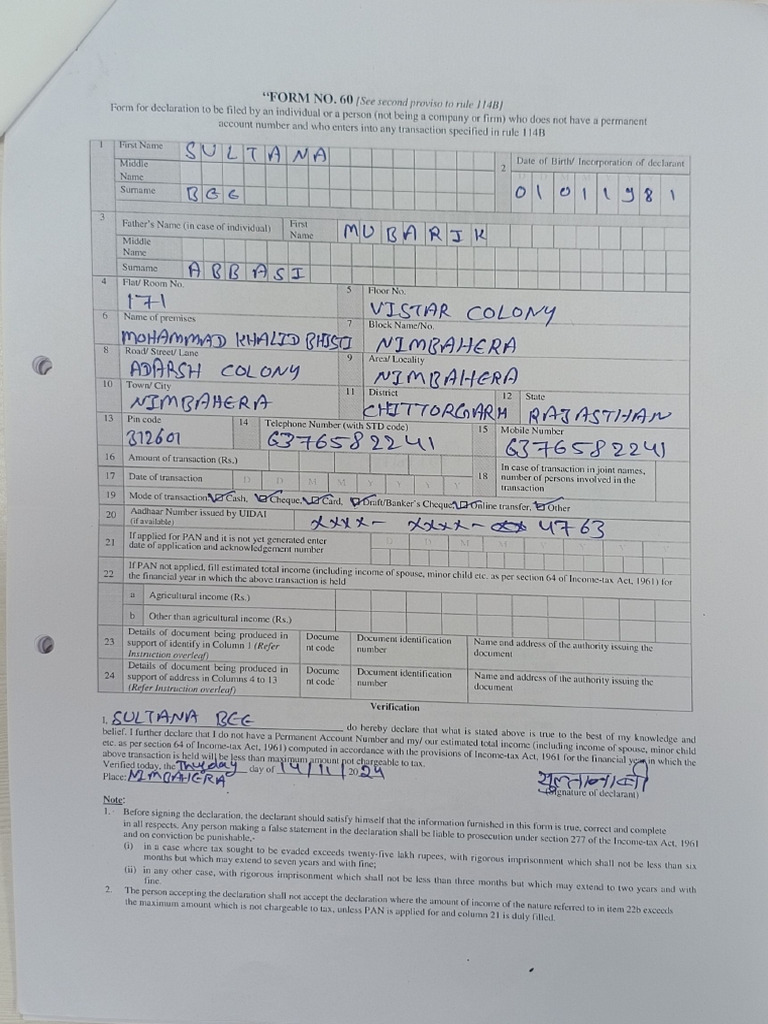 “FORM NO. 60 [See second proviso to rule 114B]
Form for declaration to be filed by an individual or a person (not being a company or firm) who does not have a permanent
account number and who enters into any transaction specified in rule 114B
1 First Name SULTANA
2 Date of Birth/ Incorporation of declarant
Middle Name
Surname BEE
01011981
3 Father's Name (in case of individual) First Name MUBARIK
Middle Name
Surname ABBASI
4 Flat/ Room No. 171
5 Floor No. VISTAR COLONY
6 Name of premises MOHAMMAD KHALID BHISTI
7 Block Name/No. NIMBAHERA
8 Road/ Street/ Lane ADARSH COLONY
9 Area/ Locality NIMBAHERA
10 Town/ City NIMBAHERA
11 District CHITTORGARH
12 State RAJASTHAN
13 Pin code 312601
14 Telephone Number (with STD code) 6376582241
15 Mobile Number 6376582241
16 Amount of transaction (Rs.)
17 Date of transaction D D M M Y Y Y Y
18 In case of transaction in joint names, number of persons involved in the transaction
19 Mode of transaction: Cash, Cheque, Card, Draft/Banker's Cheque, Online transfer, Other
20 Aadhaar Number issued by UIDAI (if available) xxxx- xxxx- 4763
21 If applied for PAN and it is not yet generated enter date of application and acknowledgement number
22 If PAN not applied, fill estimated total income (including income of spouse, minor child etc. as per section 64 of Income-tax Act, 1961) for
the financial year in which the above transaction is held
a Agricultural income (Rs.)
b Other than agricultural income (Rs.)
23 Details of document being produced in support of identify in Column 1 (Refer Instruction overleaf) Docume nt code Document identification number Name and address of the authority issuing the document
24 Details of document being produced in support of address in Columns 4 to 13 (Refer Instruction overleaf) Docume nt code Document identification number Name and address of the authority issuing the document
Verification
I, SULTANA BEE do hereby declare that what is stated above is true to the best of my knowledge and
belief. I further declare that I do not have a Permanent Account Number and my/ our estimated total income (including income of spouse, minor child
etc. as per section 64 of Income-tax Act, 1961) computed in accordance with the provisions of Income-tax Act, 1961 for the financial year in which the
above transaction is held will be less than maximum amount not chargeable to tax.
Verified today, the day of 14/11/2024
Place: NIMBAHERA
(Signature of declarant)
Note:
1. Before signing the declaration, the declarant should satisfy himself that the information furnished in this form is true, correct and complete
in all respects. Any person making a false statement in the declaration shall be liable to prosecution under section 277 of the Income-tax Act, 1961
and on conviction be punishable,-
(i) in a case where tax sought to be evaded exceeds twenty-five lakh rupees, with rigorous imprisonment which shall not be less than six
months but which may extend to seven years and with fine;
(ii) in any other case, with rigorous imprisonment which shall not be less than three months but which may extend to two years and with
fine.
2. The person accepting the declaration shall not accept the declaration where the amount of income of the nature referred to in item 22b exceeds
the maximum amount which is not chargeable to tax, unless PAN is applied for and column 21 is duly filled.